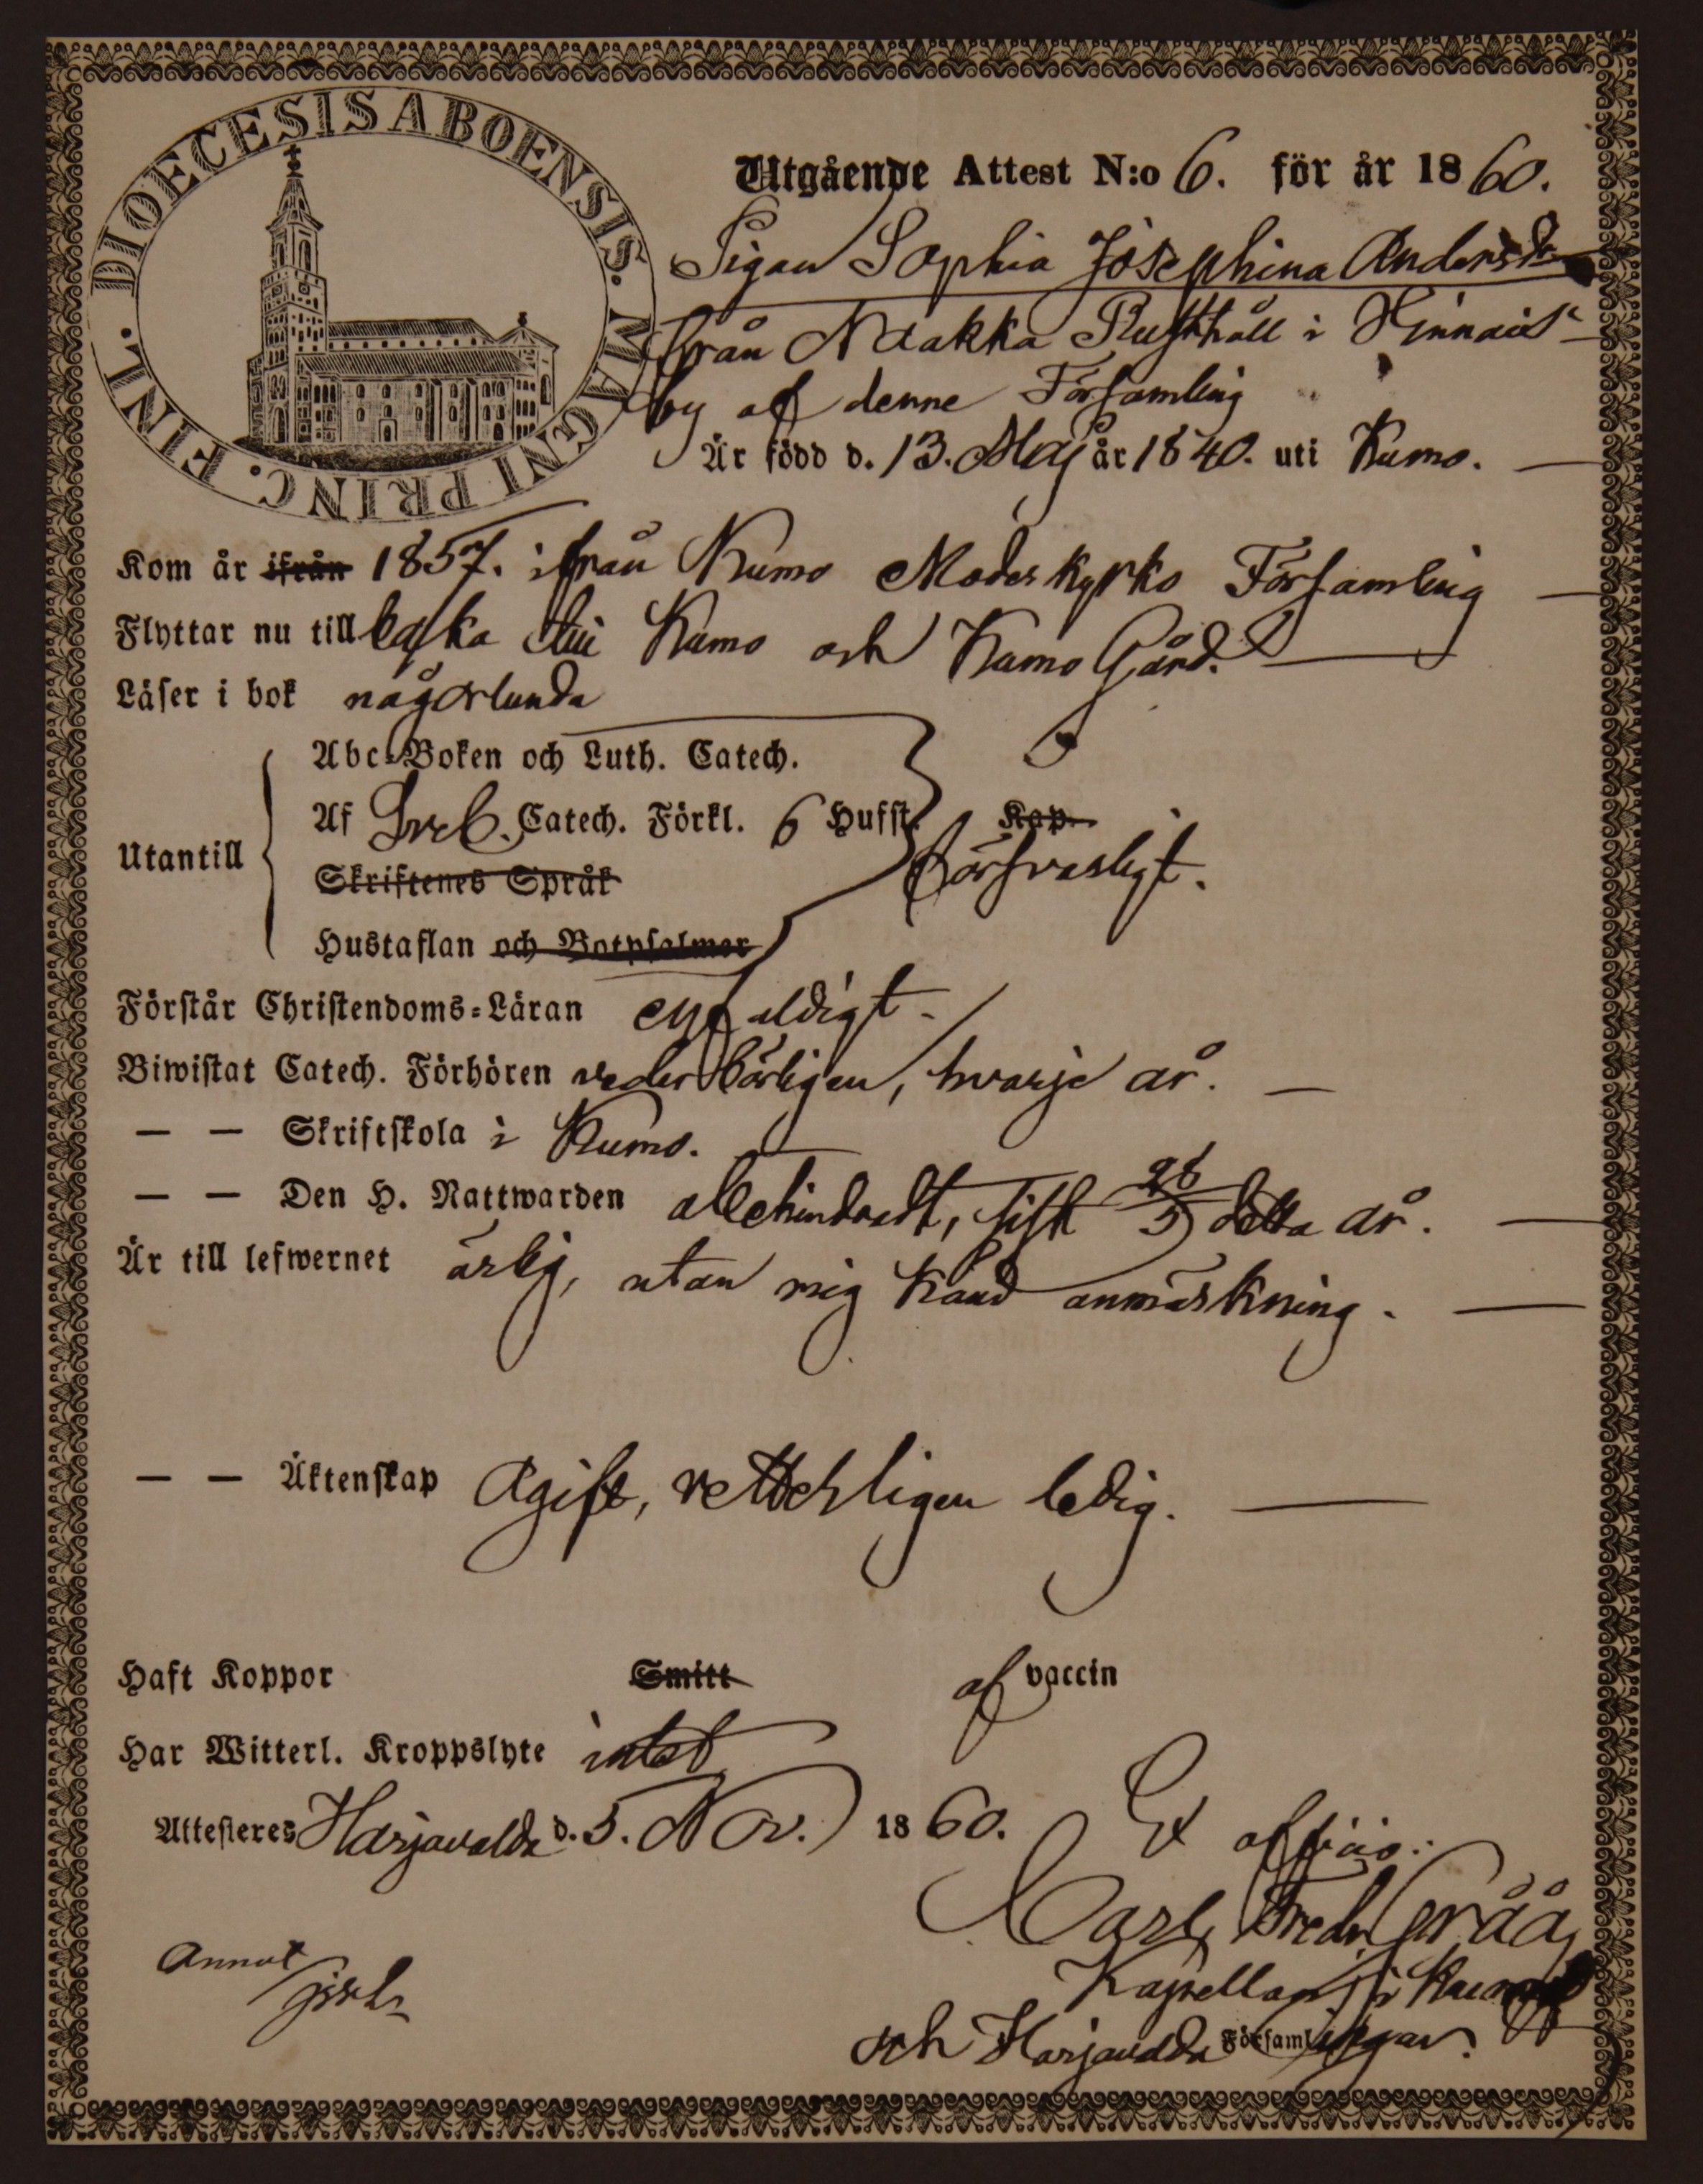 DIOECESIS ABOENSIS. MAGNI PRINC. FINL.
Utgående Attest N:o 6. för år 1860.
Pigan Sophia Josephina Andersdr
från Naakka Rusthåll i Hinnais
by af denne Församling
Är född d. 13. Maj år 1840. uti Kumo.
Kom år ifrån 1857. ifrån Kumo Moderkyrko Församling
Flyttar nu till Kumo och Kumo Gård.
Läser i bok någorlunda
Abc-Boken och Luth. Catech.
Af Sveb. Catech. Förkl. 6 Hufst. Kap.
Utantill
försvarligt.
Skriftenes Språk
Hustaflan och Botpsalmer
Förstår Christendoms-Läran enfaldigt.
Biwistat Catech. Förhören vederbörligen, hvarje år.
— — Skriftskola i Kumo.
— — Den H. Nattwarden obehindradt, sist 28/5 detta år.
Är till lefwernet ärlig, utan mig känd anmärkning.
— — Äktenskap Ogift, vetterligen ledig.
Haft Koppor Smitt af vaccin
Har Witterl. Kroppslyte intet
Attesteres Harjavalda d. 5. Nov. 1860. Ex officio:
Carl Fredr Gråå
Kapellan i Kumo
och Harjavalda Församlingar.
Annot